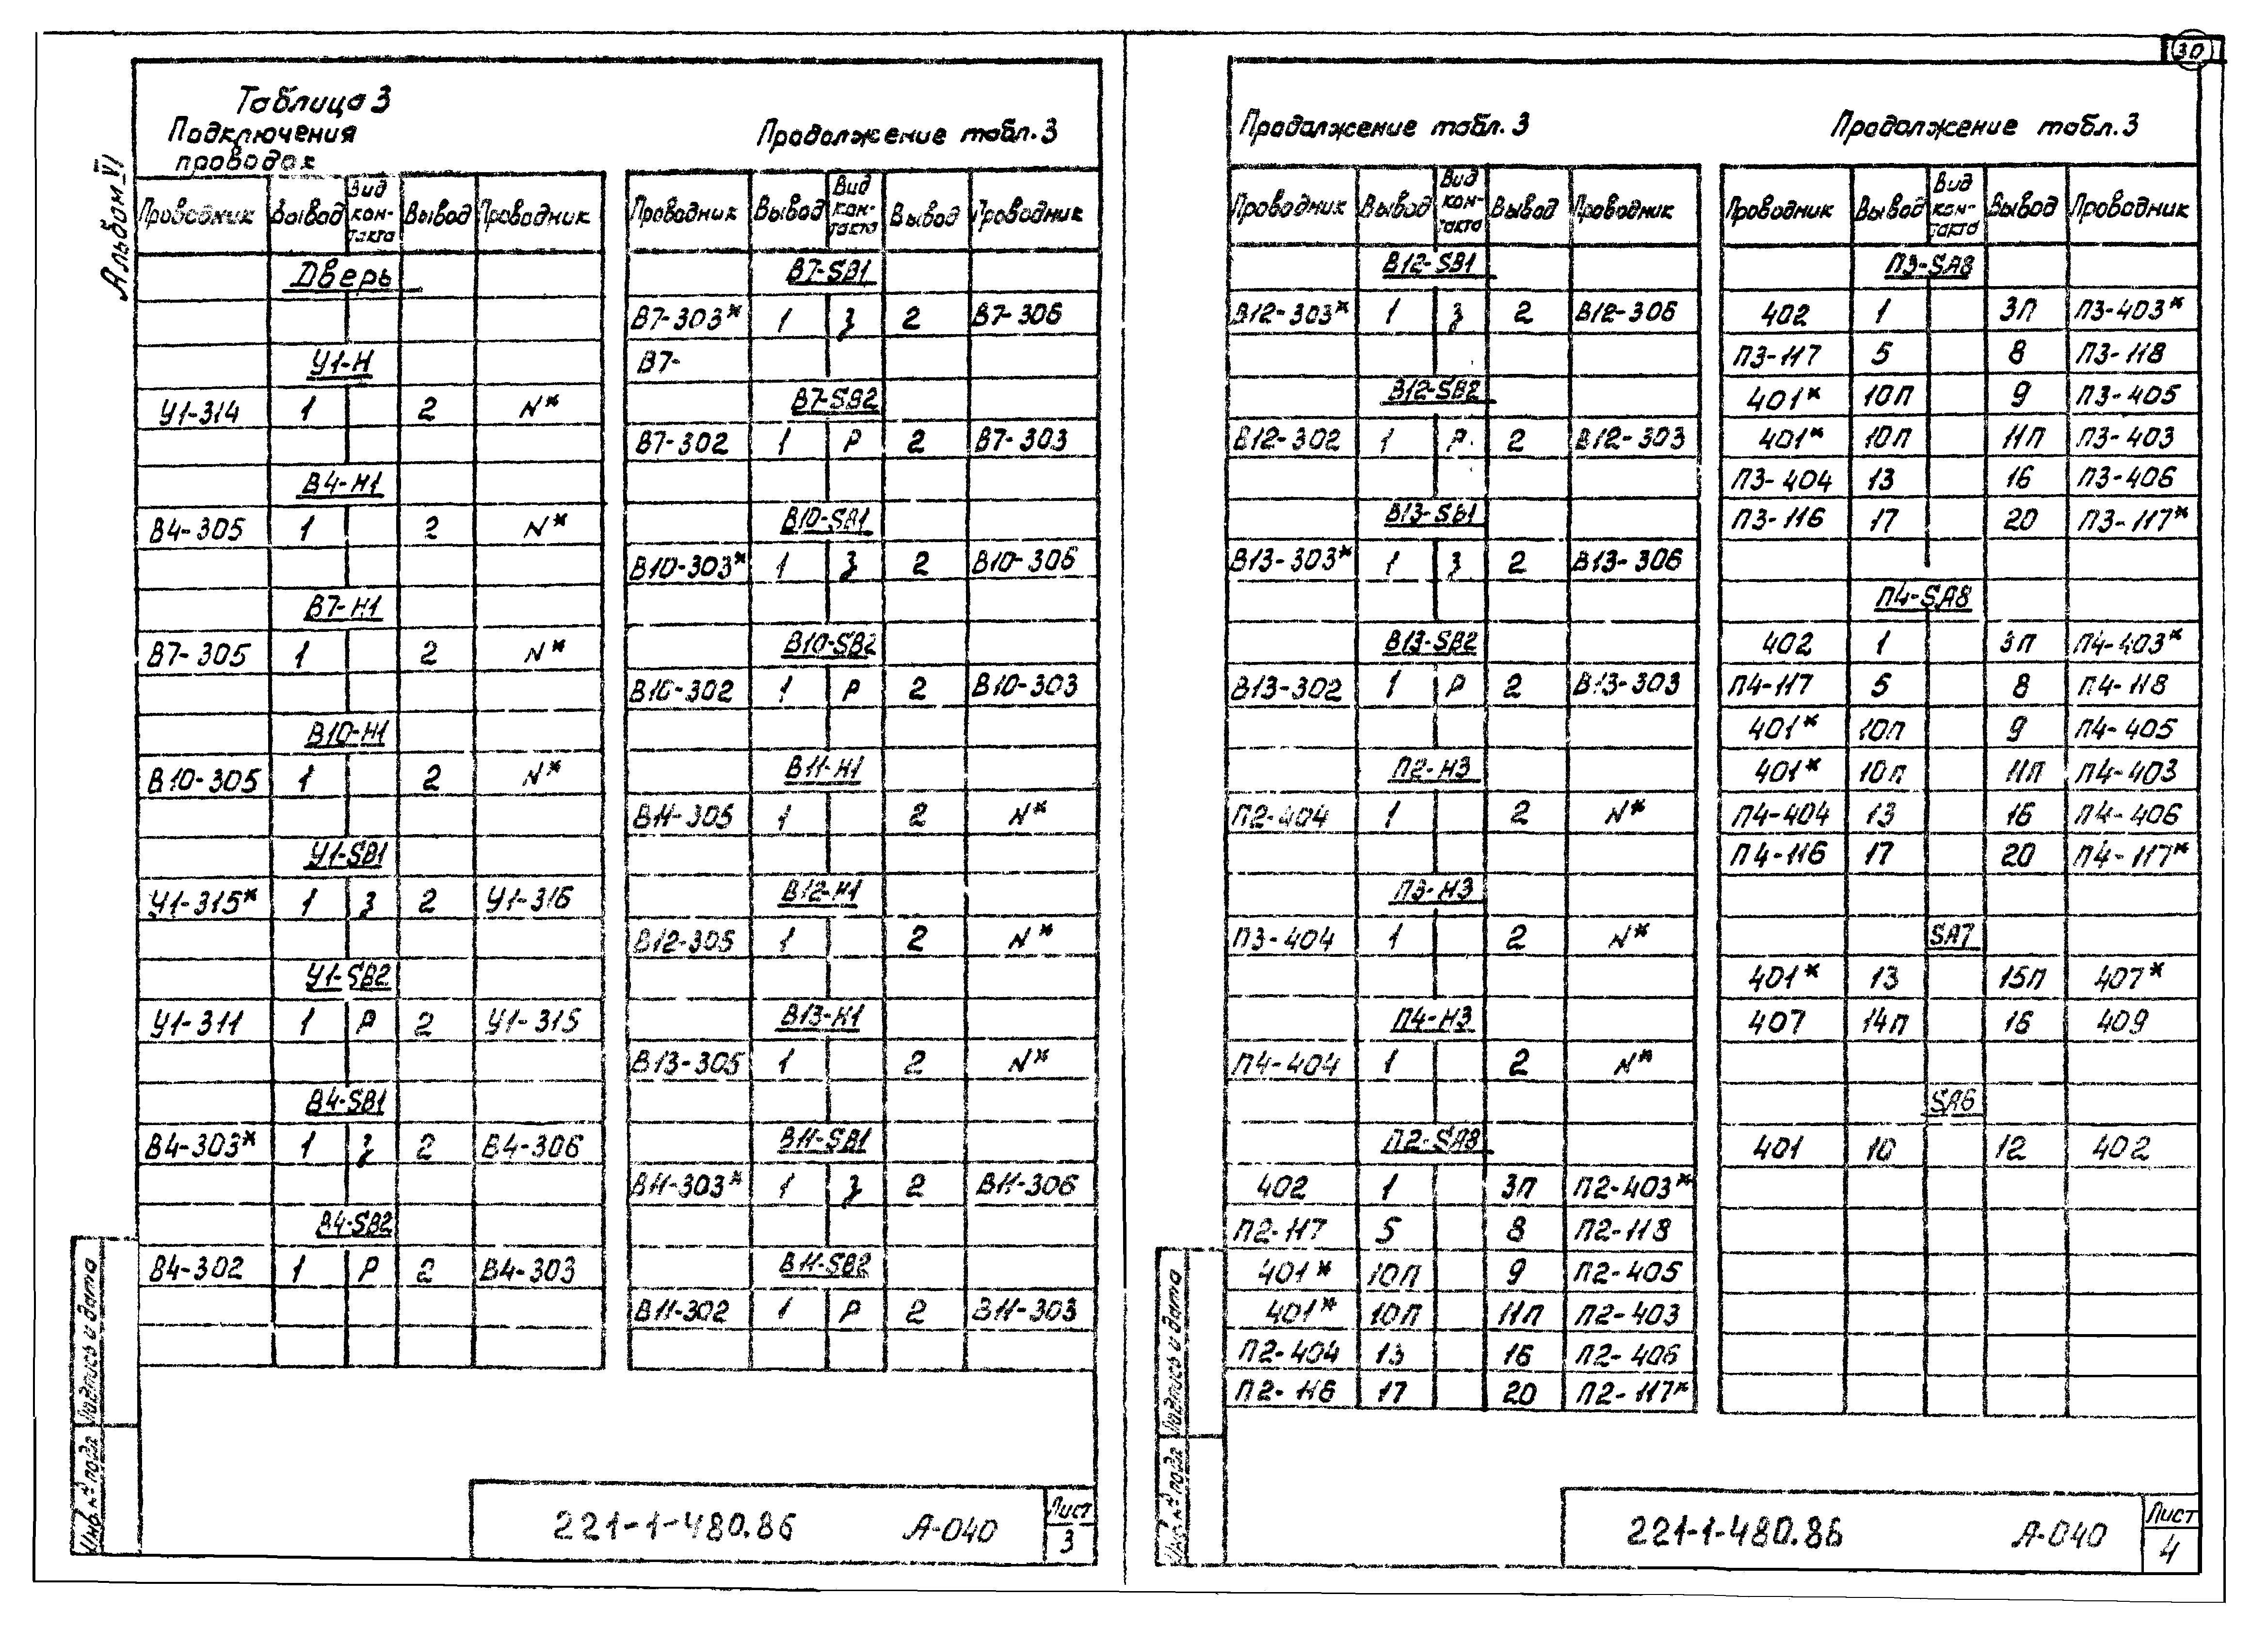 30
Альбом VI
Таблица 3
Подключения
проводок
Проводник Вывод Вид кон-такта Вывод Проводник
Дверь
У1-Н
У1-314 1 2 N*
В4-Н1
В4-305 1 2 N*
В7-Н1
В7-305 1 2 N*
В10-Н1
В10-305 1 2 N*
У1-SB1
У1-315* 1 З 2 У1-316
У1-SB2
У1-311 1 Р 2 У1-315
В4-SB1
В4-303* 1 З 2 В4-306
В4-SB2
В4-302 1 Р 2 В4-303
Продолжение табл.3
Проводник Вывод Вид кон-такта Вывод Проводник
В7-SB1
В7-303* 1 З 2 В7-306
В7-
В7-SB2
В7-302 1 Р 2 В7-303
В10-SB1
В10-303* 1 З 2 В10-306
В10-SB2
В10-302 1 Р 2 В10-303
В11-Н1
В11-305 1 2 N*
В12-Н1
В12-305 1 2 N*
В13-Н1
В13-305 1 2 N*
В11-SB1
В11-303* 1 З 2 В11-306
В11-SB2
В11-302 1 Р 2 В11-303
Инв. № подл Подпись и дата
221-1-480.86 А-040 Лист 3
Продолжение табл.3
Проводник Вывод Вид кон-такта Вывод Проводник
В12-SB1
В12-303* 1 З 2 В12-306
В12-SB2
В12-302 1 Р 2 В12-303
В13-SB1
В13-303* 1 З 2 В13-306
В13-SB2
В13-302 1 Р 2 В13-303
П2-Н3
П2-404 1 2 N*
П3-Н3
П3-404 1 2 N*
П4-Н3
П4-404 1 2 N*
П2-SA8
402 1 3П П2-403*
П2-117 5 8 П2-118
401* 10П 9 П2-405
401* 10П 11П П2-403
П2-404 13 16 П2-406
П2-116 17 20 П2-117*
Продолжение табл.3
Проводник Вывод Вид кон-такта Вывод Проводник
П3-SA8
402 1 3П П3-403*
П3-117 5 8 П3-118
401* 10П 9 П3-405
401* 10П 11П П3-403
П3-404 13 16 П3-406
П3-116 17 20 П3-117*
П4-SA8
402 1 3П П4-403*
П4-117 5 8 П4-118
401* 10П 9 П4-405
401* 10П 11П П4-403
П4-404 13 16 П4-406
П4-116 17 20 П4-117*
SA7
401* 13 15П 407*
407 14П 16 409
SA6
401 10 12 402
Инв. № подл Подпись и дата
221-1-480.86 А-040 Лист 4